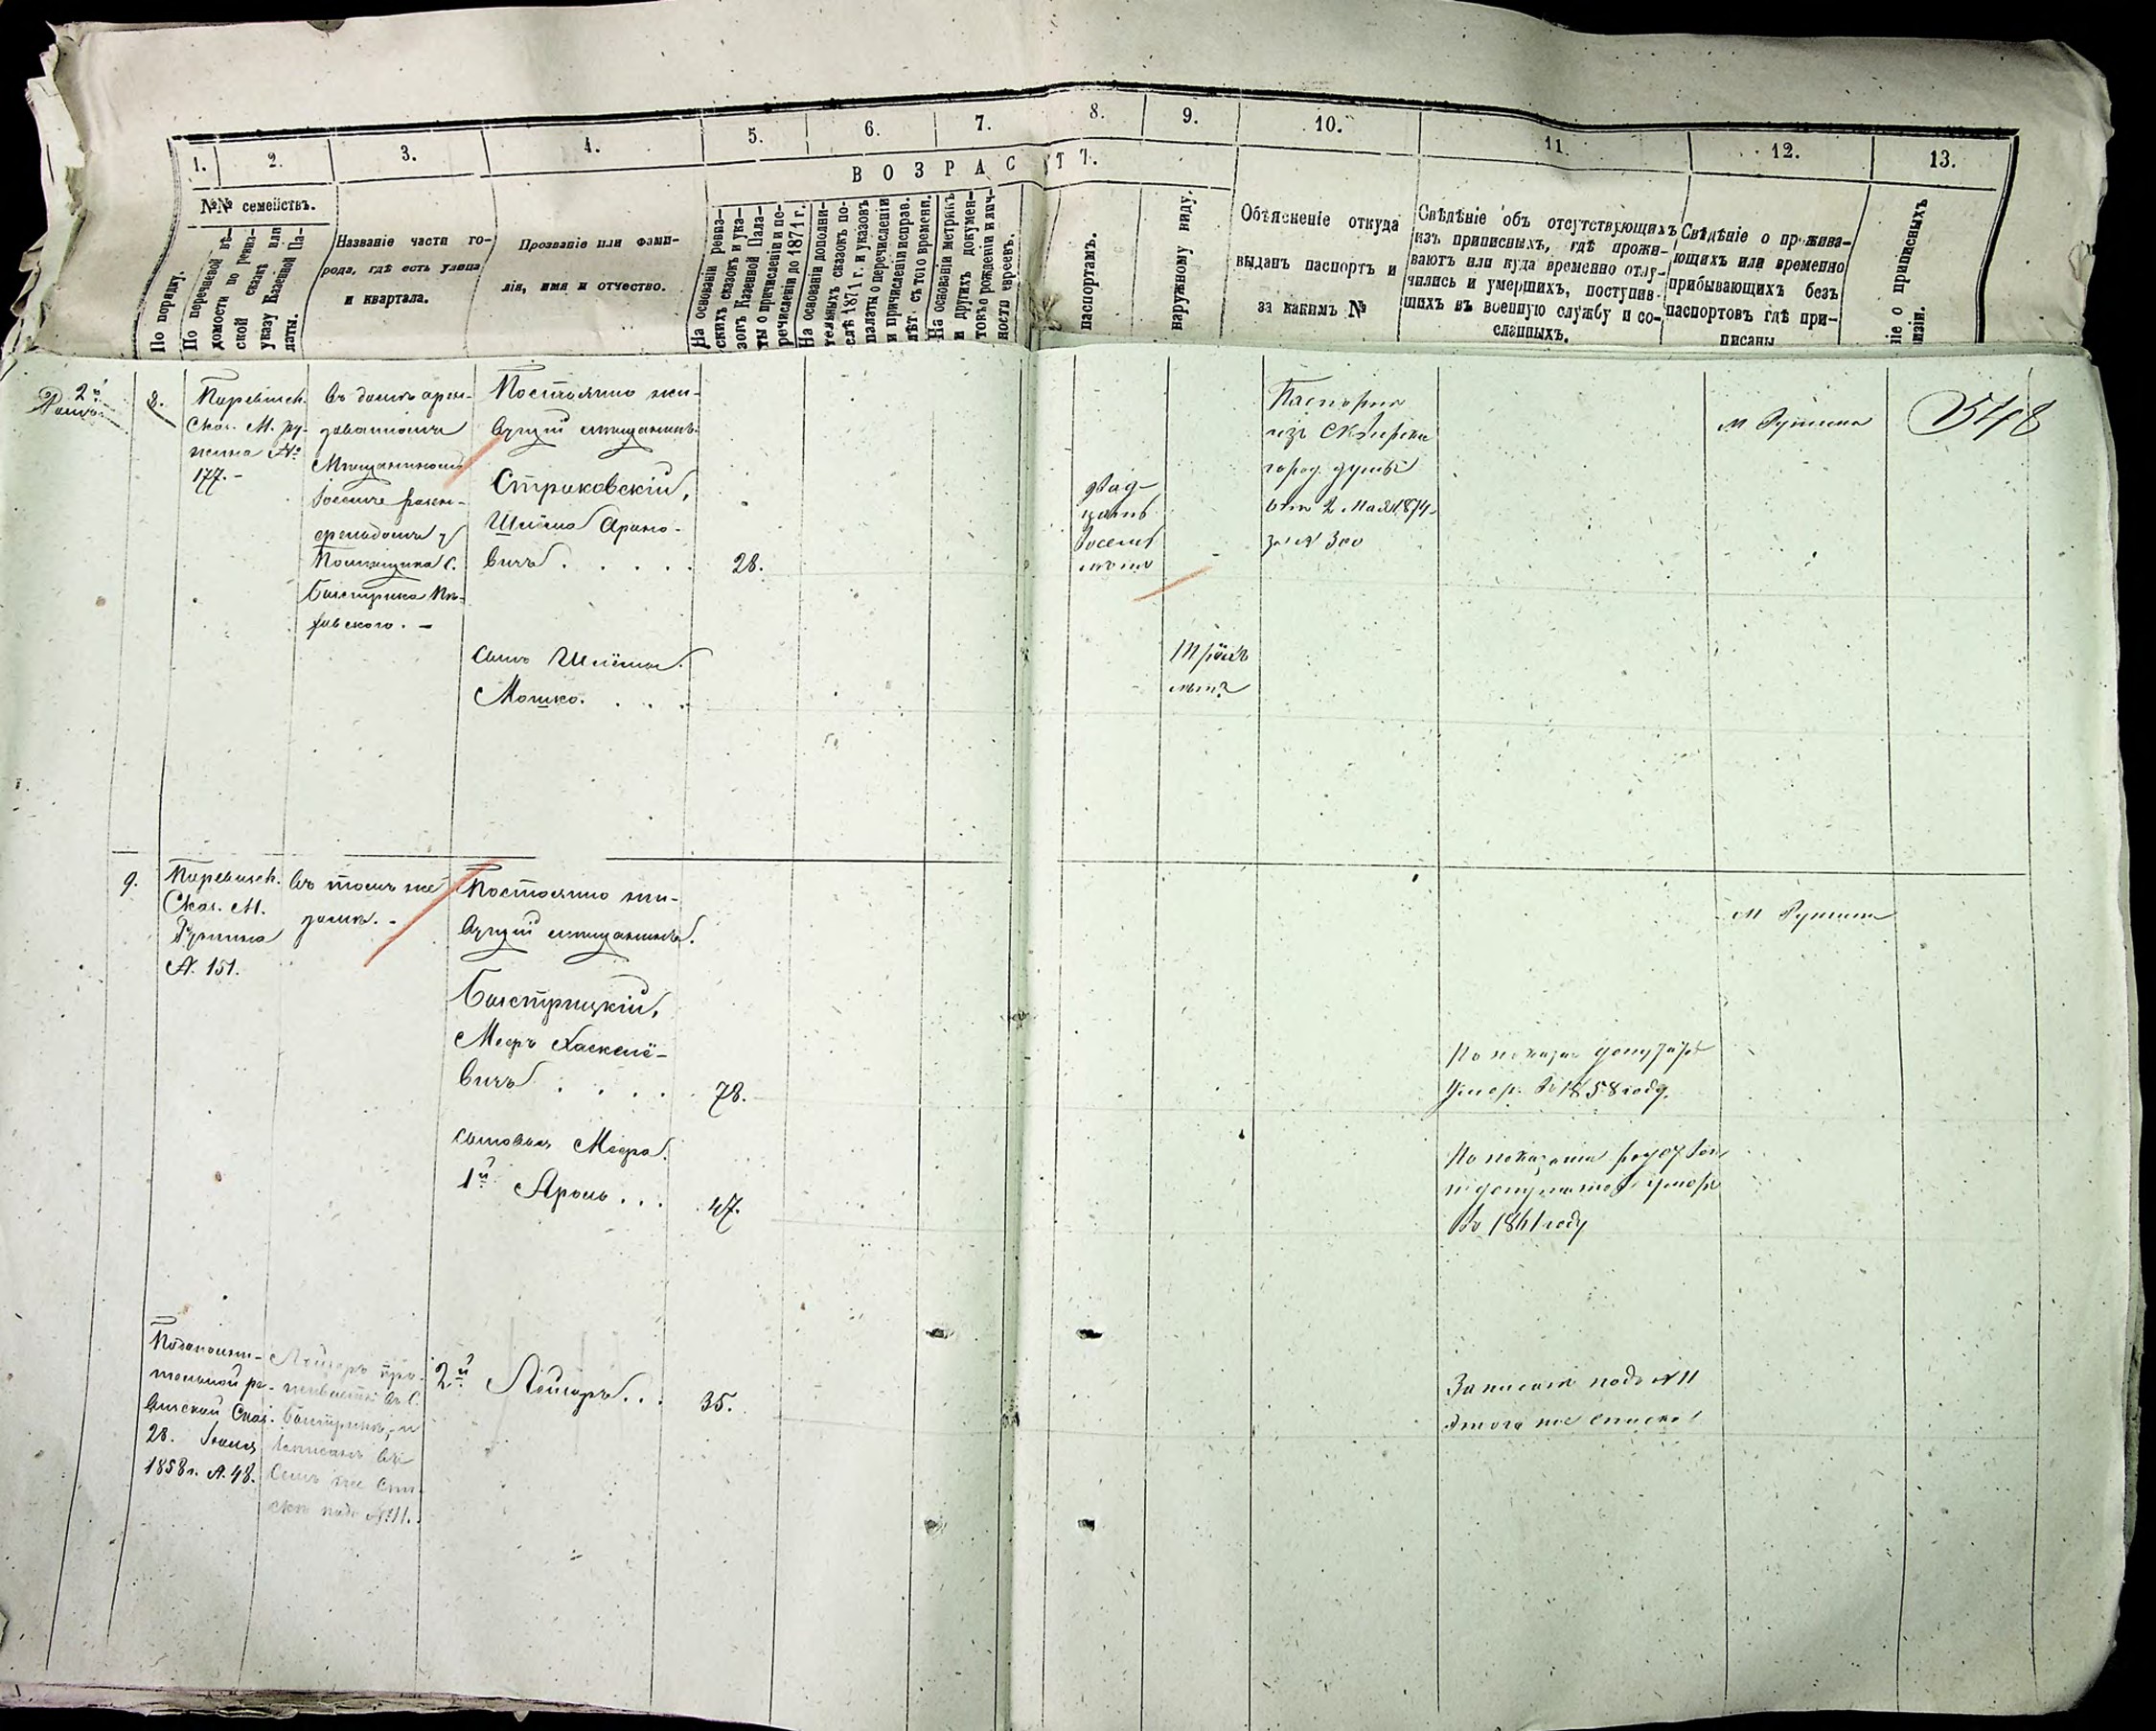 1.
2.
3.
4.
5.
6.
7.
8.
9.
10.
11.
12.
13.
ВОЗРАСТЪ.
№№ семействъ.
По порядку.
По перечневой вѣ-
домости по ревиз-
ской сказкѣ или
указу Казенной Па-
латы.
Названіе части го-
рода, гдѣ есть улица
и квартала.
Прозваніе или фами-
лія, имя и отчество.
На основаніи ревиз-
скихъ сказокъ и ука-
зовъ Казенной Пала-
ты о причисленіи и пе-
речисленіи до 1871 г.
На основаніи дополни-
тельныхъ сказокъ по-
слѣ 1871 г. и указовъ
палаты о перечисленіи
и причисленіи исправ.
лѣт. съ того времени.
На основаніи метрикъ
и другихъ докумен-
товъ о рожденіи и лич-
ности евреевъ.
паспортамъ.
наружному виду.
Объясненіе откуда
выданъ паспортъ и
за какимъ №
Свѣдѣніе объ отсутствующихъ
изъ приписныхъ, гдѣ прожи-
ваютъ или куда временно отлу-
чились и умершихъ, поступив-
шихъ въ военную службу и со-
сланныхъ.
Свѣдѣніе о прожива-
ющихъ или временно
прибывающихъ безъ
паспортовъ гдѣ при-
писаны
ніе о приписныхъ
визіи.
2й
8.
Скаж. М. Ру-
жина №
177.-
въ домѣ арен-
Мѣщаниномъ
Помѣщика С.
Постоянно жи-
вущій мѣщанинъ
Стриковскій,
Шлёма Ароно-
вичъ . . . . .
28.
двад-
цать
восемь
лѣтъ
Паспортъ
изъ Сквирской
город. думы
отъ 2 Мая 1874
за № 300
м Ружина
548
Сынъ Шлёмы
Мошко. . . .
Трёхъ
лѣтъ
9.
Скаж. М.
Ружина
№. 151.
въ томъ же
домѣ. -
Постоянно жи-
вущій мѣщанинъ.
м Ружина
Быстрицкій,
Мееръ Хаскелё-
вичъ . . . .
78.
По показан депутатовъ
умер. въ 1858 году.
Сыновья Меера
1й Аронъ . . .
47.
По показанію
и депутатовъ умеръ
въ 1861 году
Подополни-
тельной ре-
визской Сказ.
28. Іюня
1858 г. №. 48.
Лейзеръ про-
живаетъ въ С.
Быстрикѣ, и
записанъ въ
семъ же спи-
скѣ подъ №11.
2й Лейзеръ . . .
35.
Записанъ подъ №11
этого же списка